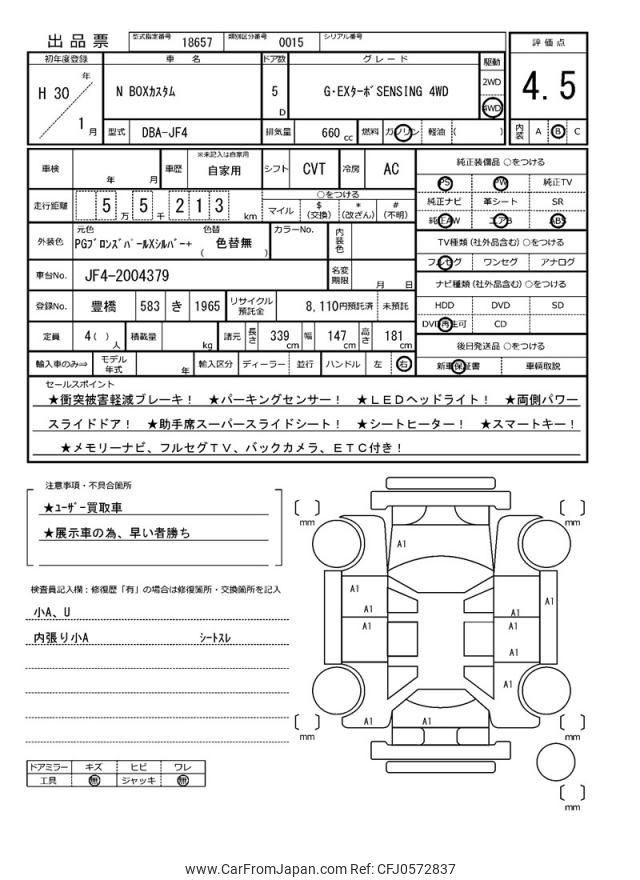 出品票 型式指定番号 18657 類別区分番号 0015 シリアル番号
初年度登録 車名 ドア数 グレード 駆動 評価点
H 30 年 1 月 N BOXカスタム 5 D G・EXターボSENSING 4WD 2WD 4WD 4.5
型式 DBA-JF4 排気量 660 cc 燃料 ガソリン 軽油 ( ) 内装 A B C
車検 年 月 車歴 ※未記入は自家用 自家用 シフト CVT 冷房 AC
走行距離 5 万 5 千 2 1 3 km ○をつける マイル $(交換) *(改ざん) #(不明)
外装色 元色 PGブロンズパールXシルバー+ 色替 ( 色替無 ) カラーNo. 内装色
車台No. JF4-2004379 名変期限 月 日
登録No. 豊橋 583 き 1965 リサイクル預託金 8,110円預託済 未預託
定員 4( )人 積載量 kg 諸元 長さ 339 cm 幅 147 cm 高さ 181 cm
輸入車のみ⇒ モデル年式 年 輸入区分 ディーラー 並行 ハンドル 左 右
純正装備品 ○をつける
PS PW 純正TV
純正ナビ 革シート SR
純正AW エアB ABS
TV種類(社外品含む) ○をつける
フルセグ ワンセグ アナログ
ナビ種類(社外品含む) ○をつける
HDD DVD SD
DVD再生可 CD
後日発送品 ○をつける
新車保証書 車輌取説
セールスポイント
★衝突被害軽減ブレーキ! ★パーキングセンサー! ★LEDヘッドライト! ★両側パワー
スライドドア! ★助手席スーパースライドシート! ★シートヒーター! ★スマートキー!
★メモリーナビ、フルセグTV、バックカメラ、ETC付き!
注意事項・不具合箇所
★ユーザー買取車
★展示車の為、早い者勝ち
検査員記入欄:修復歴「有」の場合は修復箇所・交換箇所を記入
小A、U
内張り小A シートスレ
ドアミラー キズ ヒビ ワレ
工具 無 ジャッキ 無
mm
mm
A1
A1
A1
A1
A1
A1
A1
A1
A1
A1
A1
A1
mm
mm
mm
www.CarFromJapan.com Ref: CFJ0572837